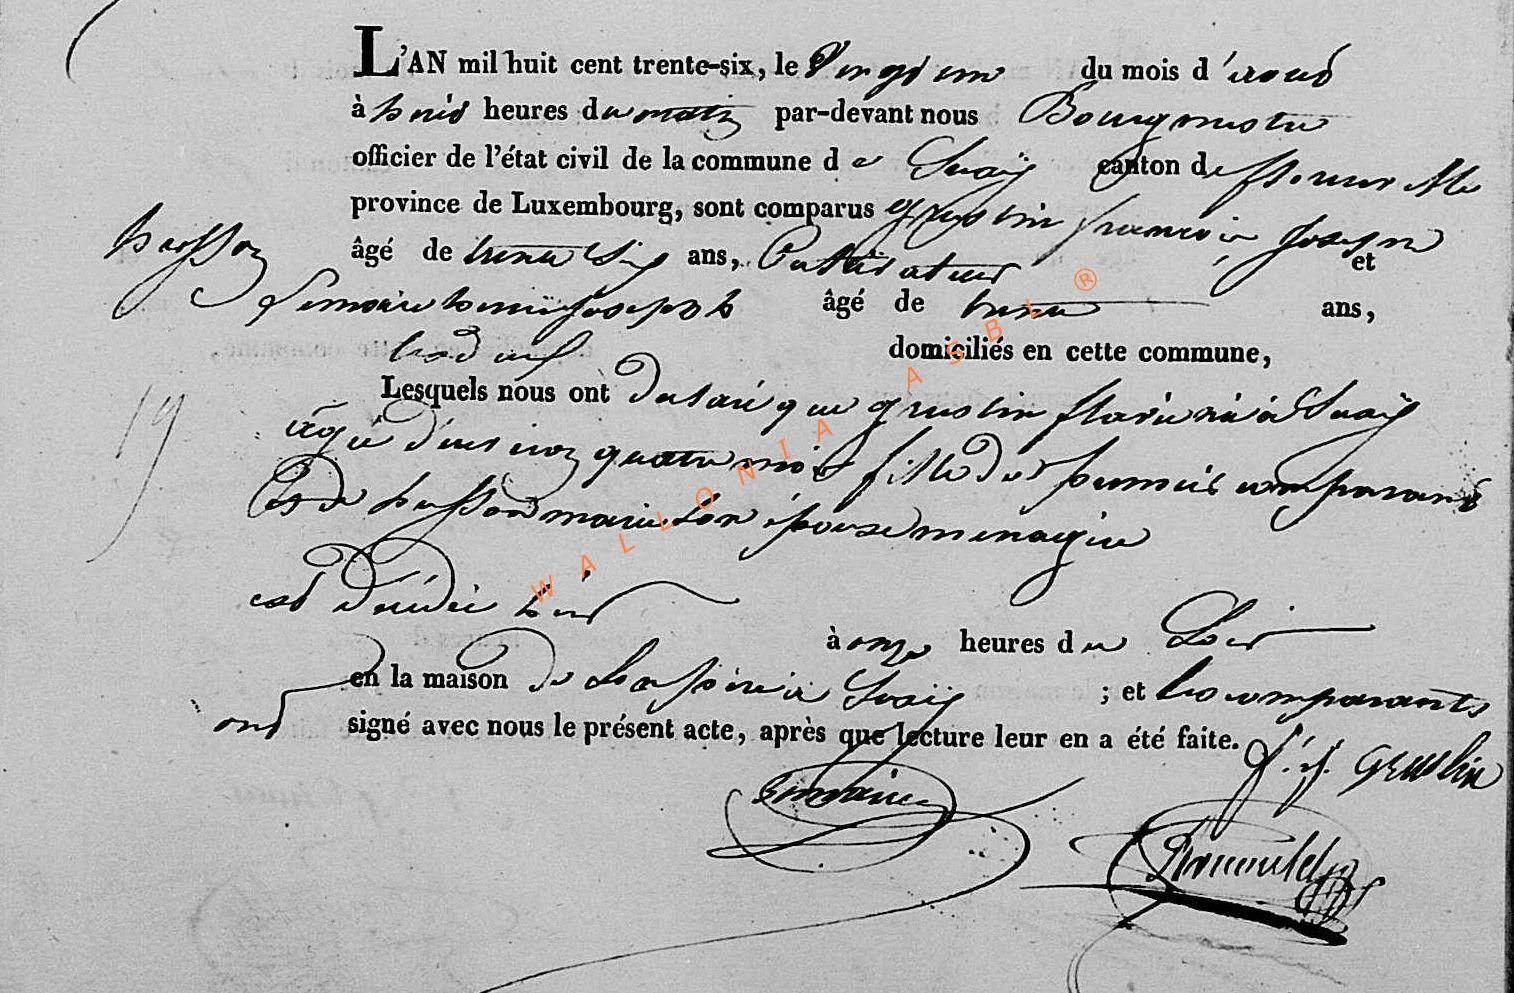 L'AN mil huit cent trente-six, le Vingt un du mois d'aout
à huit heures du matin par-devant nous Bourgmestre
officier de l'état civil de la commune de Suxy canton de florenville
province de Luxembourg, sont comparus gruslin francois Joseph
âgé de trente six ans, Cultivateur et
husson
Lemaire henri joseph âgé de trente ans,
domiciliés en cette commune,
Lesquels nous ont Declaré que gruslin florine née à Suxy
agée d'un an quatre mois fille du premier comparant
Et de husson marie son épouse menagere
est décédée hier
à onze heures du Soir
en la maison de Son père à Suxy ; et les comparants
ont signé avec nous le présent acte, après que lecture leur en a été faite.
f. j. Gruslin
Lemaire
WALLONIA ASBL ®